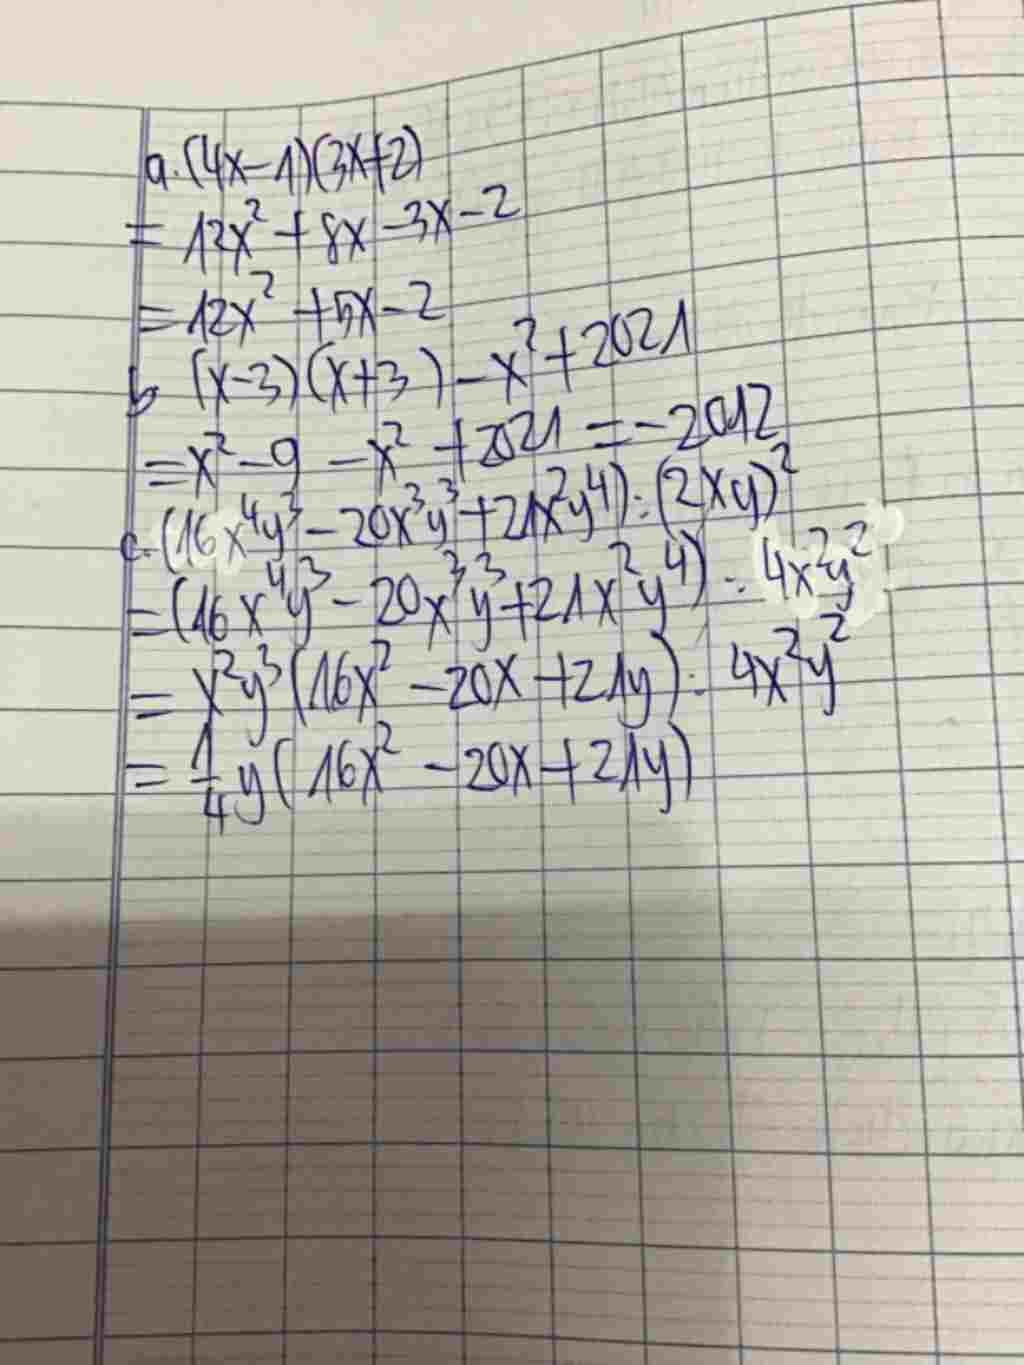 a. (4x-1)(3x+2)
= 12x² + 8x - 3x - 2
= 12x² + 5x - 2
b (x-3)(x+3) - x² + 2021
= x² - 9 - x² + 2021 = -2012
c. (16x⁴y³ - 20x³y³ + 21x²y⁴) : (2xy)²
= (16x⁴y³ - 20x³y³ + 21x²y⁴) : 4x²y²
= x²y³(16x² - 20x + 21y) : 4x²y²
= 1/4 y(16x² - 20x + 21y)